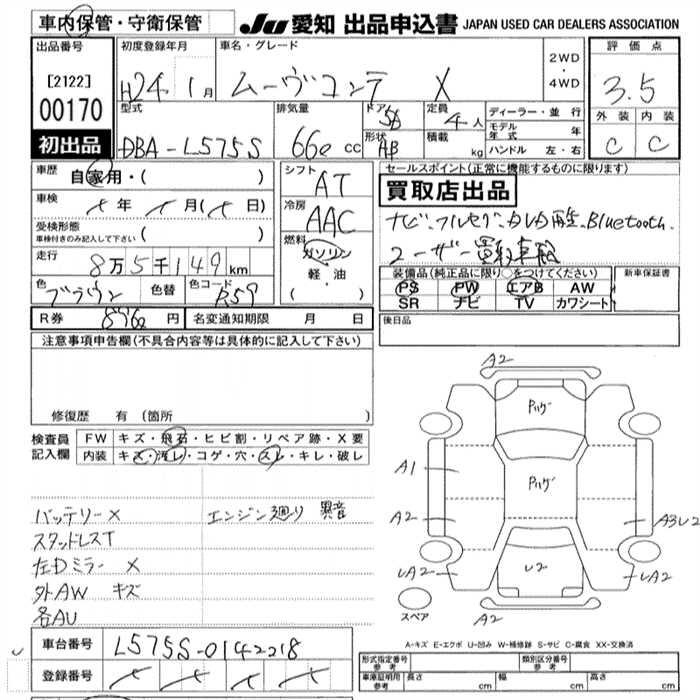 車内保管・守衛保管 JU愛知 出品申込書 JAPAN USED CAR DEALERS ASSOCIATION
出品番号 初度登録年月 車名・グレード 2WD・4WD 評価点
[2122] H24年 1月 ムーヴコンテ X 3.5
00170 型式 排気量 ドア 定員 ディーラー・並行 外装 内装
初出品 DBA-L575S 660 cc 5D 4人 モデル年式 年 C C
形状 AB 積載 kg ハンドル 左・右
車歴 自家用・( ) シフト AT セールスポイント(正常に機能するものに限ります)
買取店出品
車検 年 月( 日) 冷房 AAC
ナビ、フルセグ、カレカ再生、Bluetooth、
受検形態 車検付きのみ記入して下さい ( ) 燃料 ガソリン
ユーザー買取車輌
走行 8万5千149km 軽・油 ( )
装備品(純正品に限り○をつけてください) 新車保証書
PS PW エアB AW
SR ナビ TV カワシート
色 ブラウン 色替 色コード R59
R券 8960円 名変通知期限 月 日 後日品
注意事項申告欄(不具合内容等は具体的に記入して下さい)
修復歴 有 (箇所
検査員記入欄 FW キズ・飛石・ヒビ割・リペア跡・X要
内装 キズ・汚レ・コゲ・穴・スレ・キレ・破レ
バッテリーX エンジン廻り 異音
スタッドレスT
左Dミラー X
外AW キズ
各AU
A2
Pハゲ
A1 Pハゲ
A2 A3U2
UA2 U2 UA2
スペア A2
A-キズ E-エクボ U-凹み W-補修跡 S-サビ C-腐食 XX-交換済
車台番号 L575S-0142218
登録番号
形式指定番号 参考 類別区分番号 参考
車庫証明用 参考 長さ cm 幅 cm 高さ cm